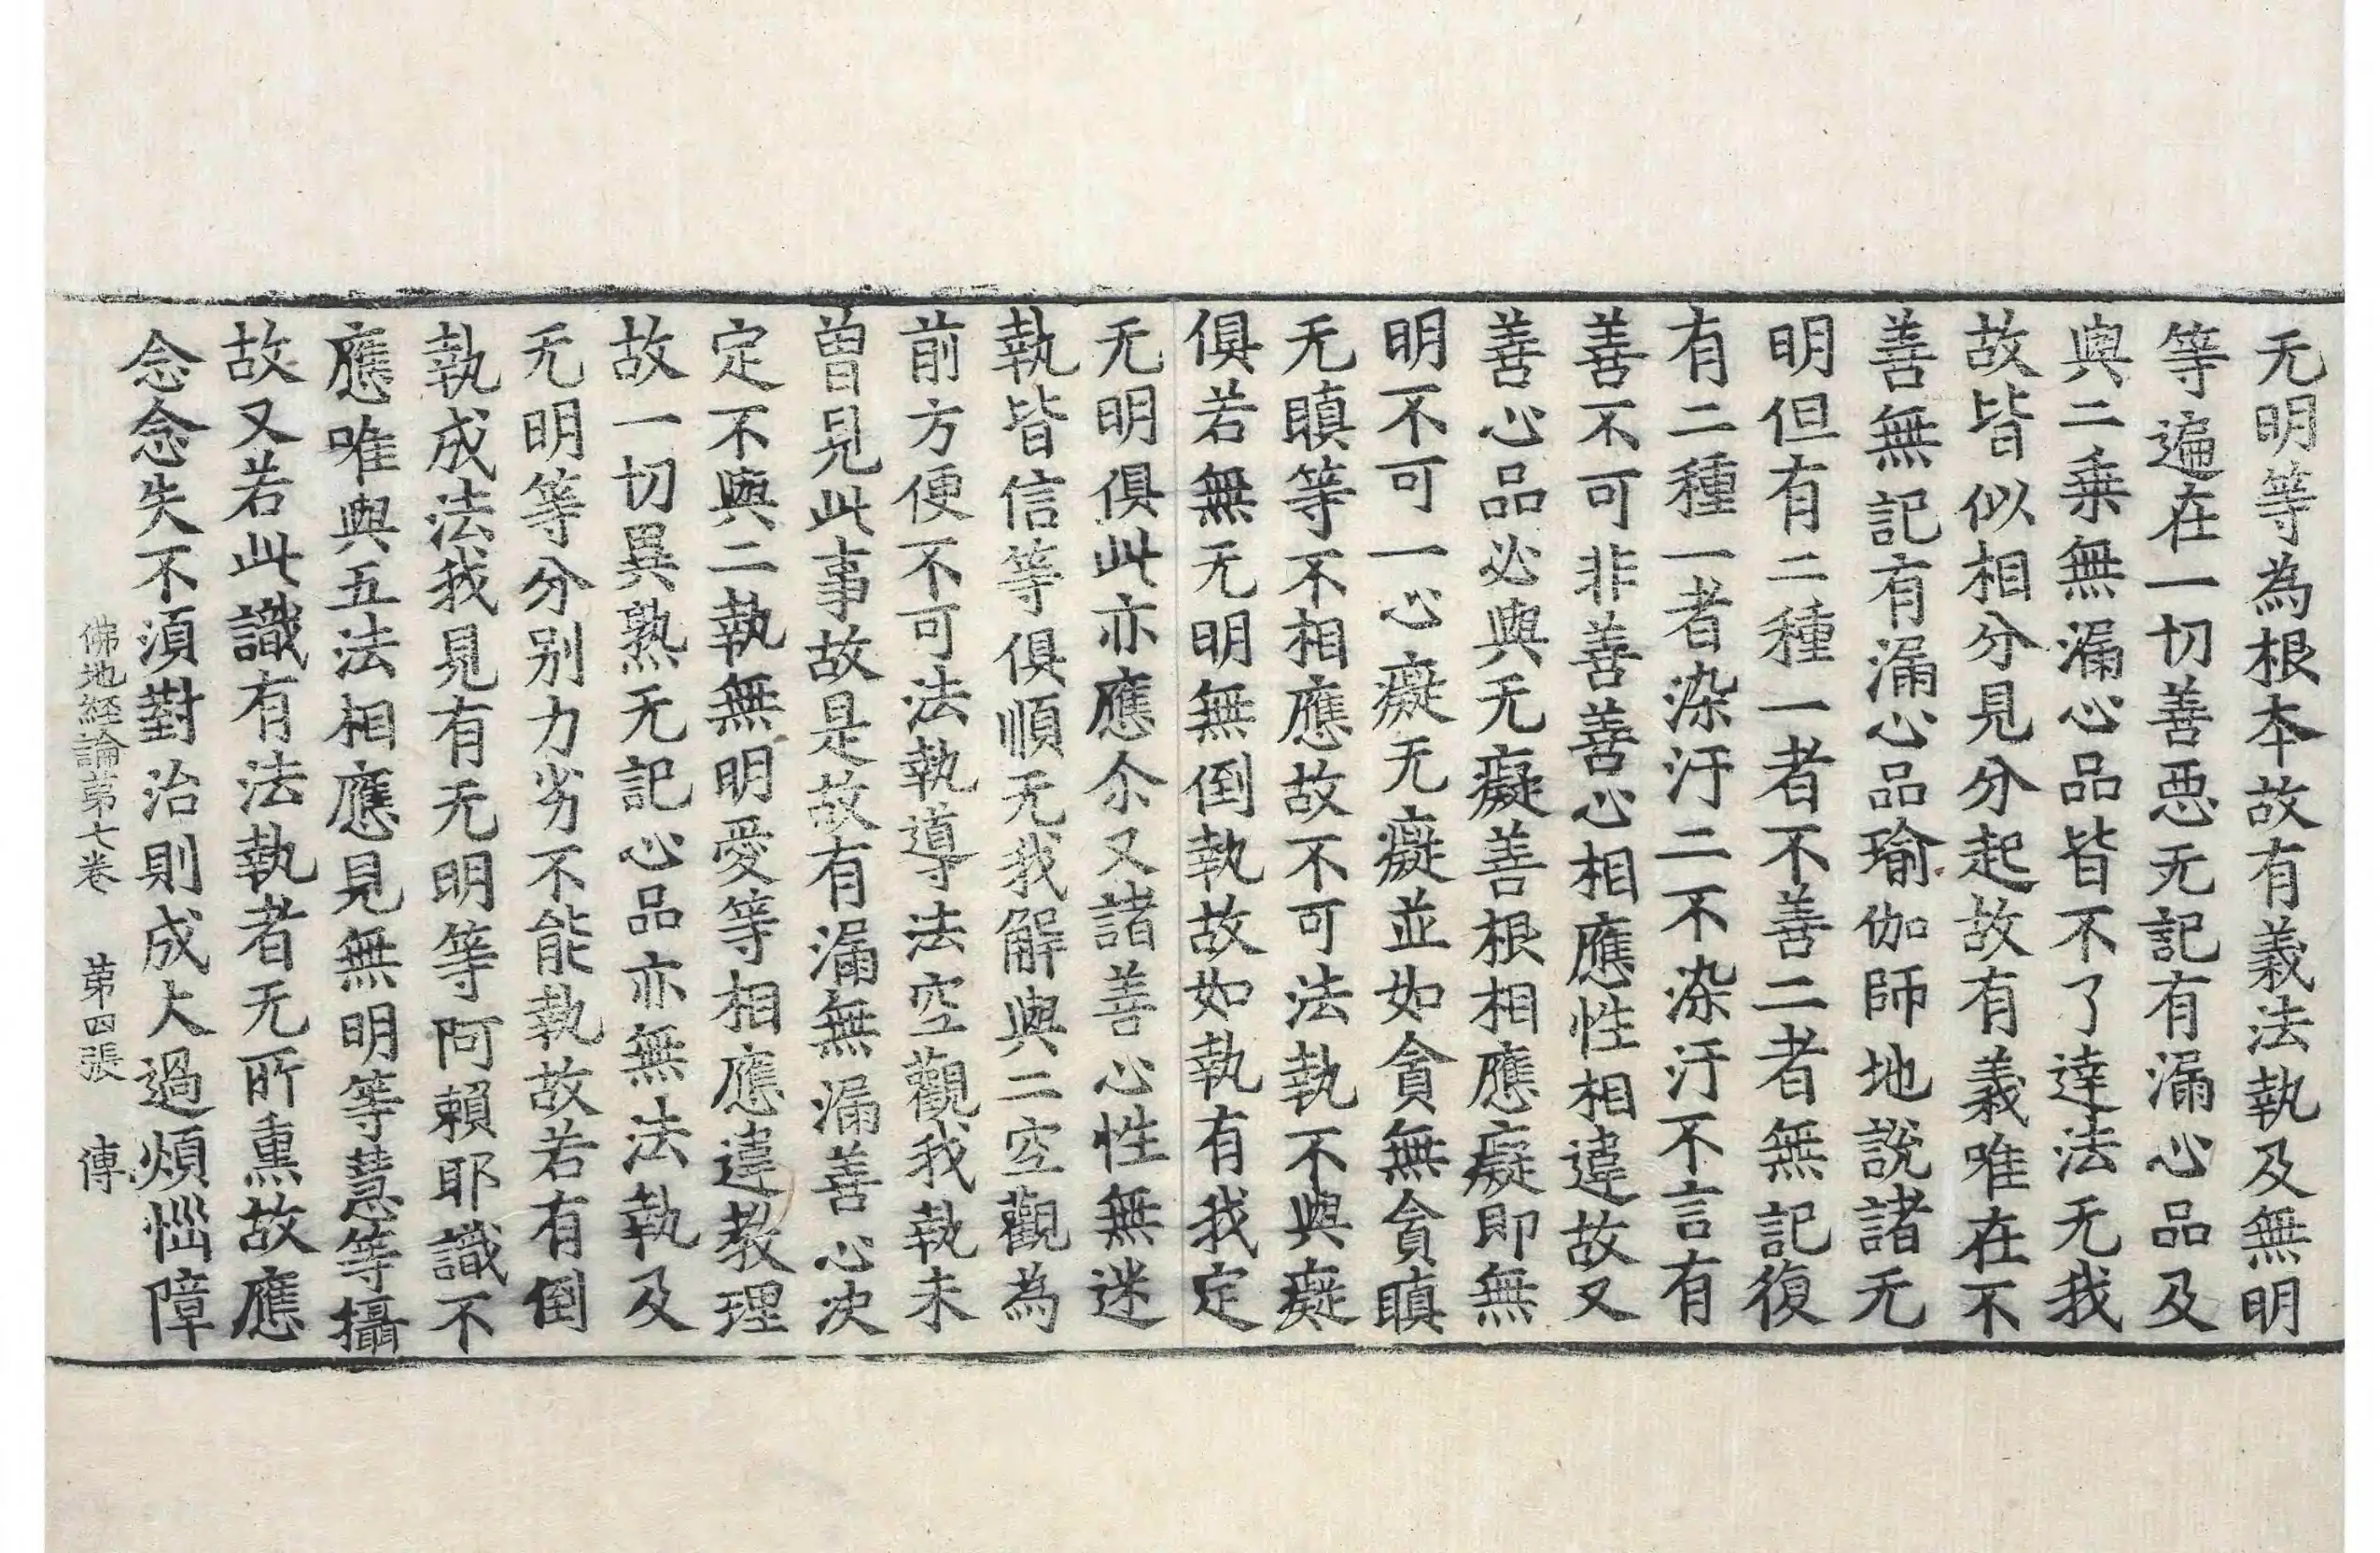 无明等為根本故有義法執及無明
等遍在一切善悪无記有漏心品及
與二乗無漏心品皆不了達法无我
故皆似相分見分起故有義唯在不
善無記有漏心品瑜伽師地說諸无
明但有二種一者不善二者無記復
有二種一者染汙二不染汙不言有
善不可非善善心相應性相違故又
善心品必與无癡善根相應癡即無
明不可一心癡无癡並如貪無貪瞋
无瞋等不相應故不可法執不與癡
俱若無无明無倒執故如執有我定
无明俱此亦應尒又諸善心性無迷
執皆信等俱順无我解與二空觀為
前方便不可法執導法空觀我執未
曽見此事故是故有漏無漏善心决
定不與二執無明愛等相應違教理
故一切異熟无記心品亦無法執及
无明等分别力劣不能執故若有倒
執成法我見有无明等阿賴耶識不
應唯與五法相應見無明等慧等攝
故又若此識有法執者无所熏故應
念念失不湏對治則成大過煩惱障
佛地経論第七卷 第四張 傳